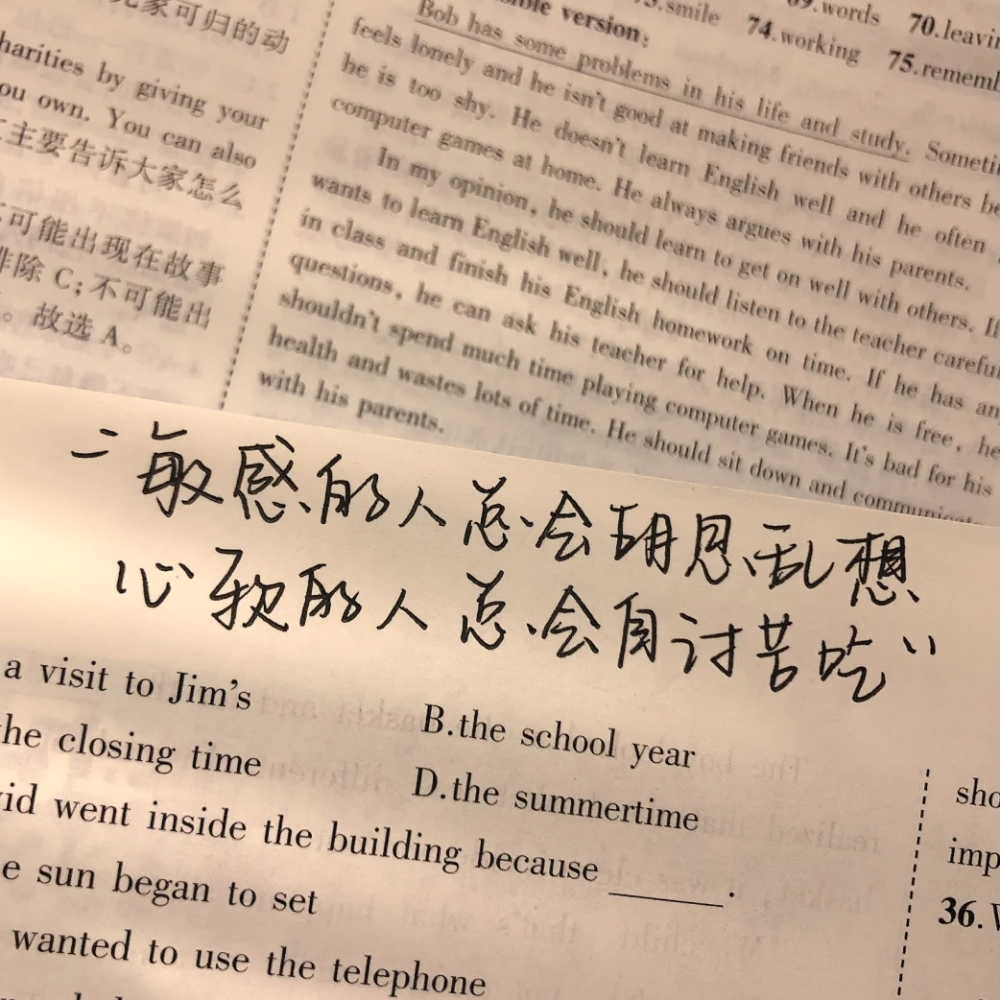 家可归的动
harities by giving your
ou own. You can also
主要告诉大家怎么
可能出现在故事
排除 C;不可能出
。故选 A。
smile 74.working 75.rememb
words 70.leavin
version:
Bob has some problems in his life and study. Someti
feels lonely and he isn't good at making friends with others be
he is too shy. He doesn't learn English well and he often
computer games at home. He always argues with his parents.
In my opinion, he should learn to get on well with others. If
wants to learn English well, he should listen to the teacher careful
in class and finish his English homework on time. If he has an
questions, he can ask his teacher for help. When he is free, he
shouldn't spend much time playing computer games. It's bad for his
health and wastes lots of time. He should sit down and communicate
with his parents.
"敏感的人总会胡思乱想
心软的人总会自讨苦吃"
a visit to Jim's B.the school year
he closing time D.the summertime
vid went inside the building because ______.
e sun began to set
wanted to use the telephone
sho
imp
36.W